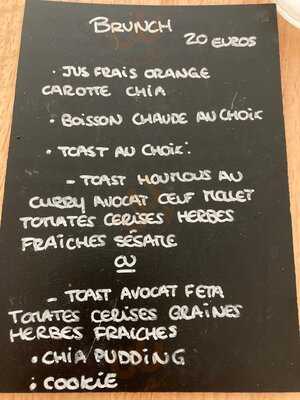 BRUNCH
20 EUROS
• JUS FRAIS ORANGE
CAROTTE CHIA
• BOISSON CHAUDE AU CHOIX
• TOAST AU CHOIX:
- TOAST HOUMOUS AU
CURRY AVOCAT ŒUF MOLLET
TOMATES CERISES HERBES
FRAÎCHES SÉSAME
OU
- TOAST AVOCAT FETA
TOMATES CERISES GRAINES
HERBES FRAICHES
• CHIA PUDDING
• COOKIE